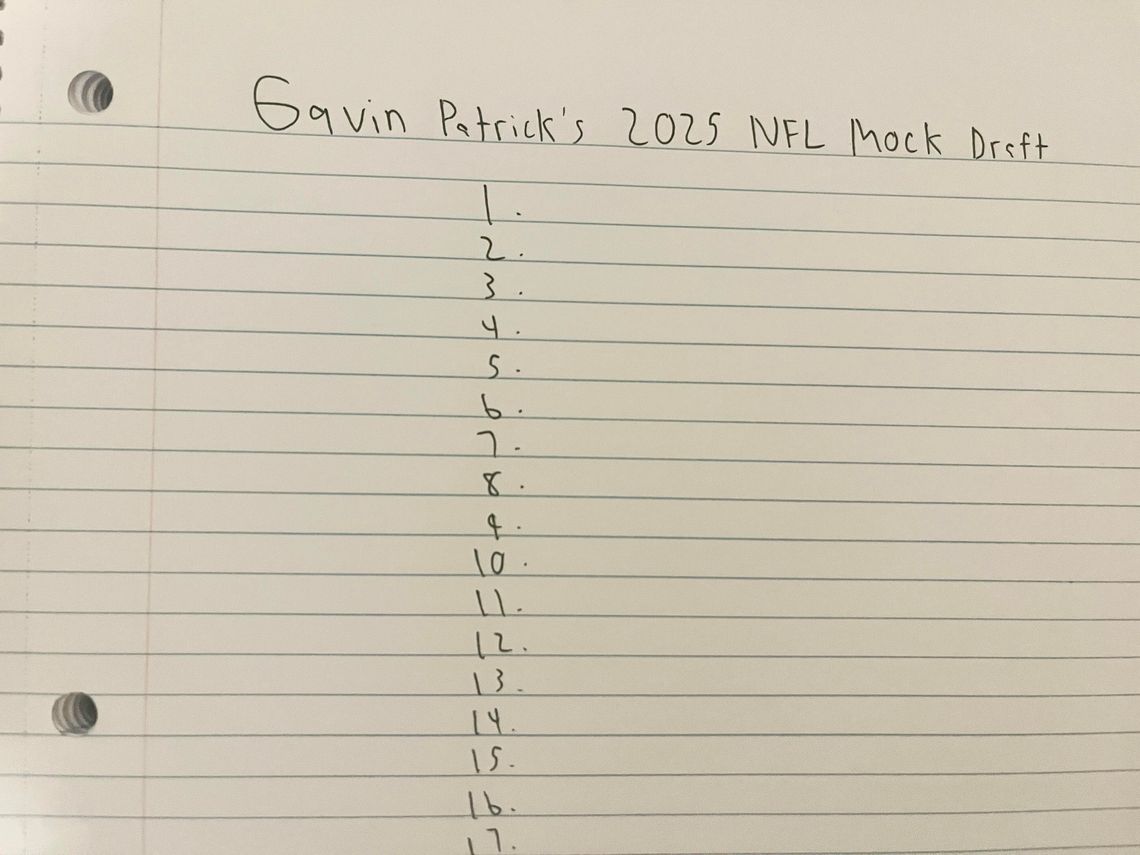 Gavin Patrick's 2025 NFL Mock Draft
1.
2.
3.
4.
5.
6.
7.
8.
9.
10.
11.
12.
13.
14.
15.
16.
17.